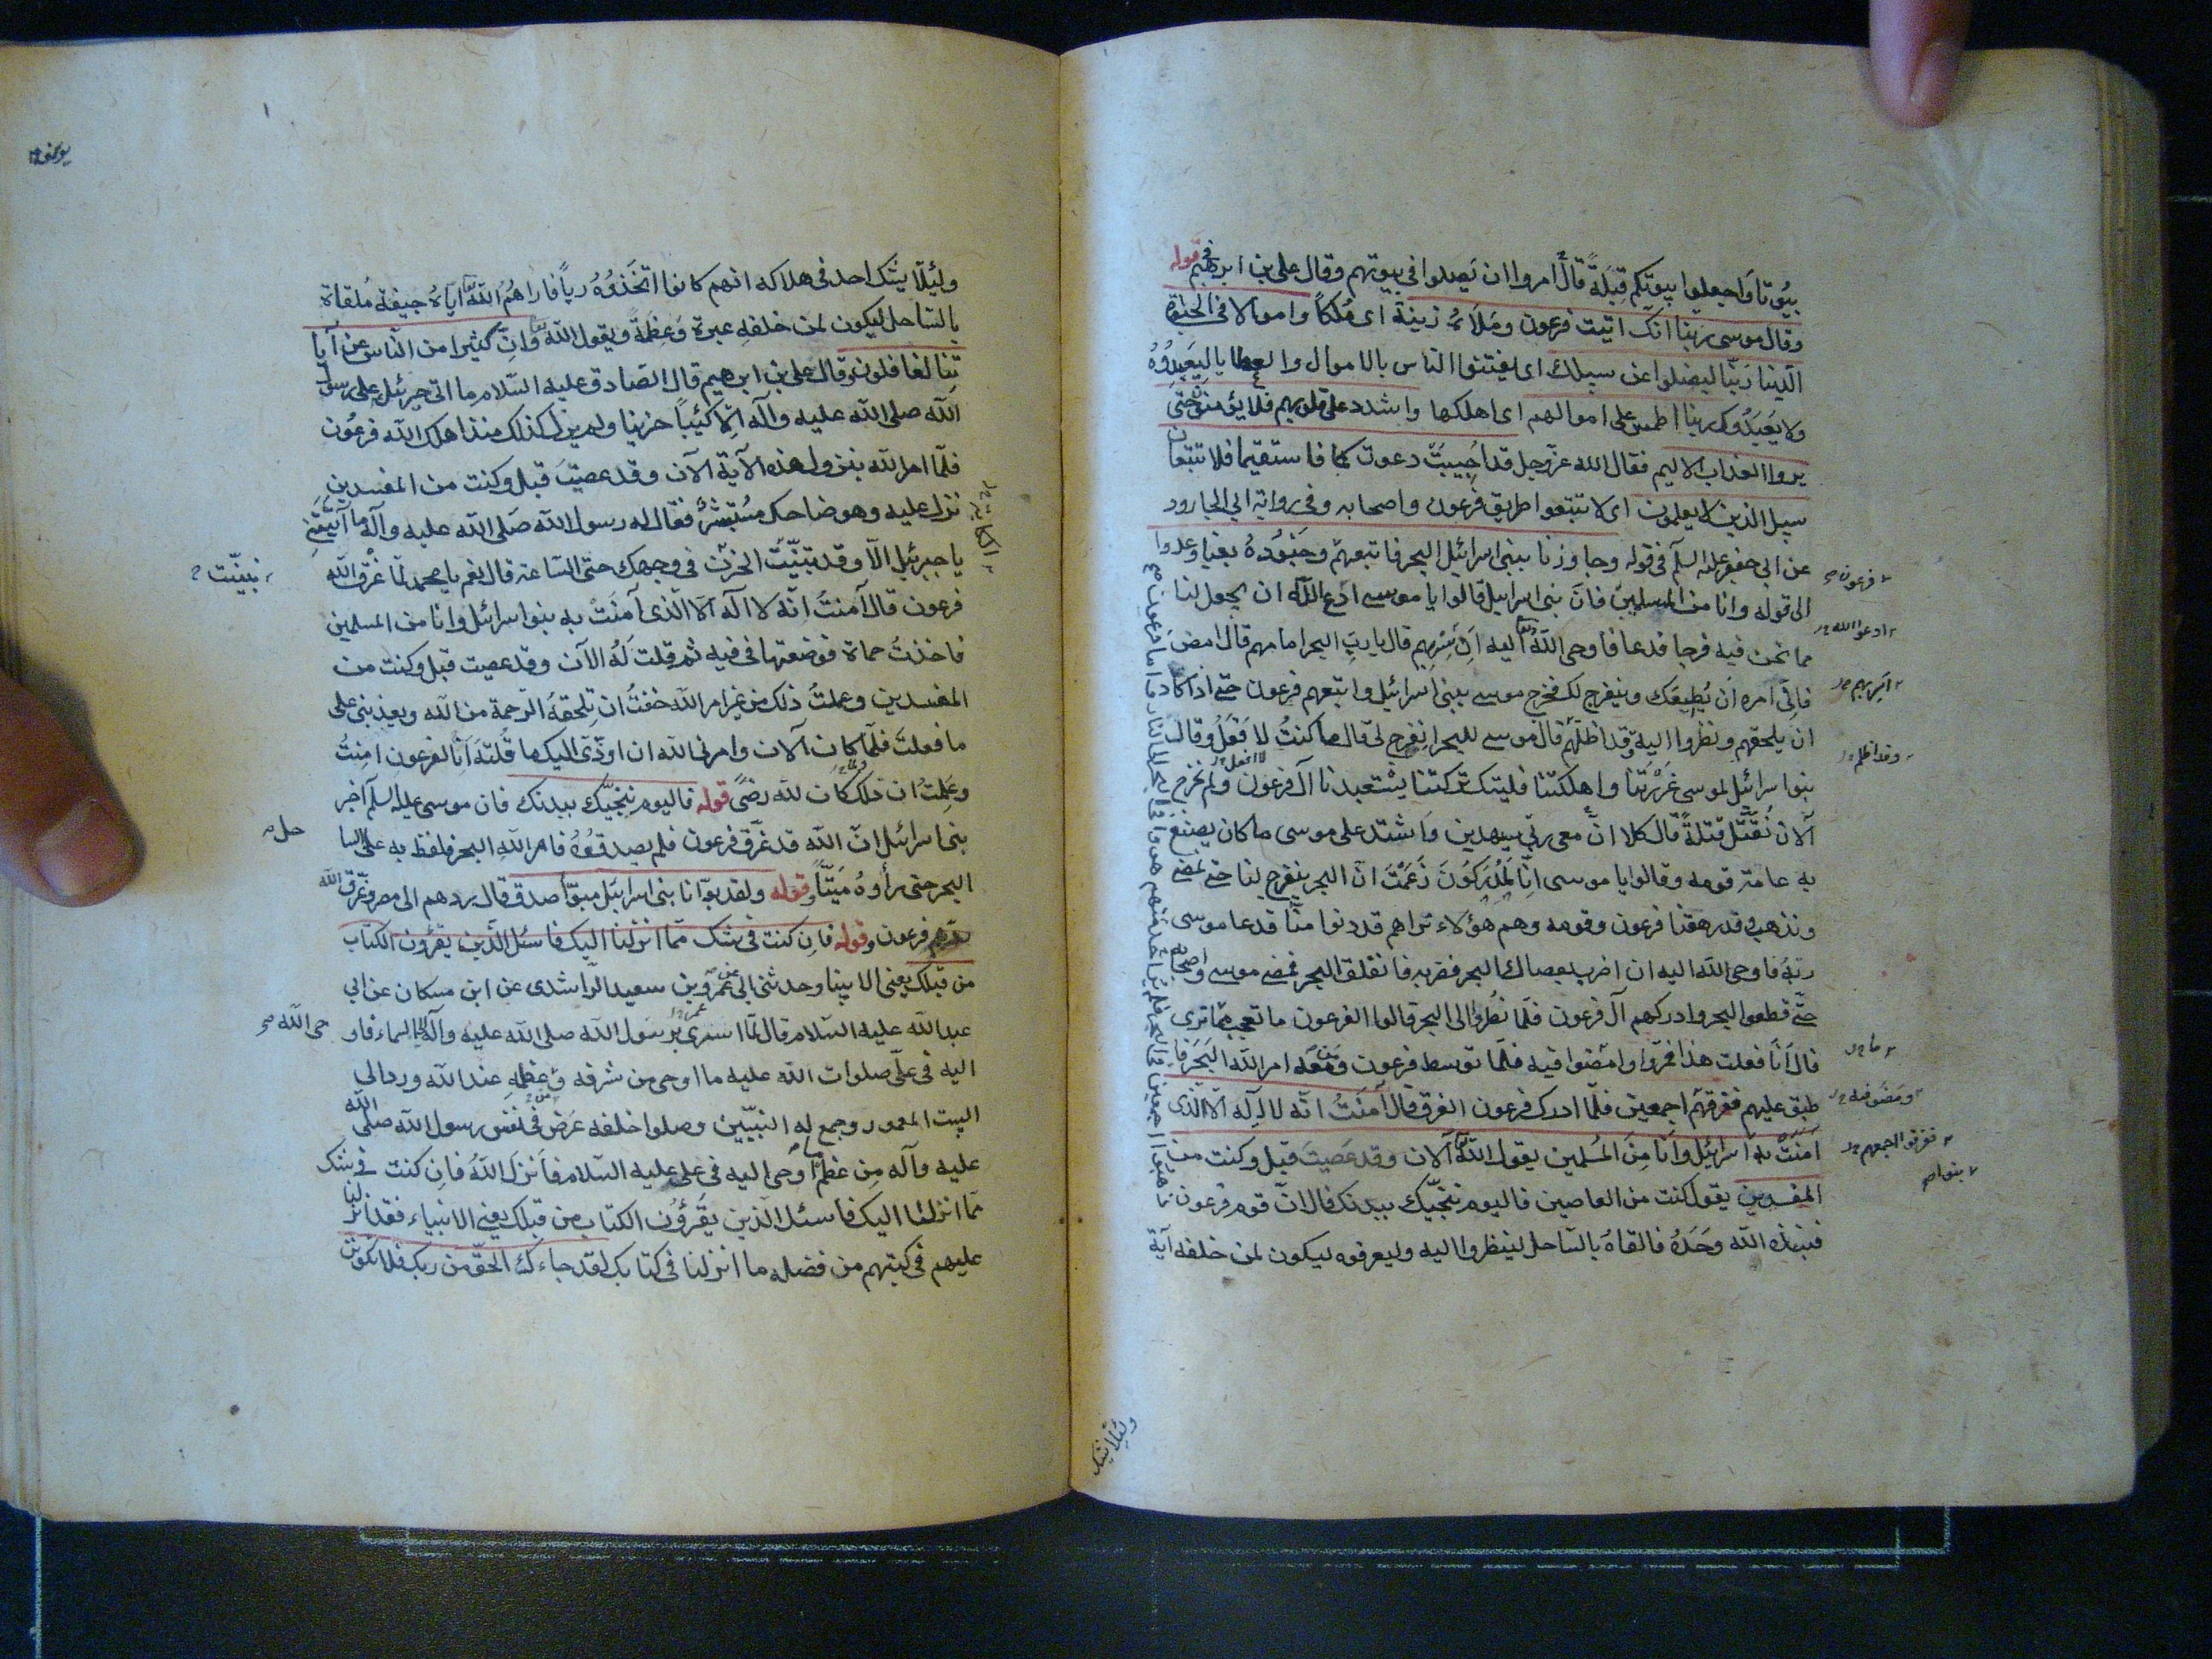 بيُوتا وَاجعلوا بيوتكم قِبلَةً قال امروا ان يَصلوا في بيوتهم وقال على بن ابرهيم في قوله
وقال موسى ربنا انّك اتيت فرعون ومَلَاَهُ زينة اى مُلكاً واموالا فى الحيوة
الدّينا ربّنا ليضلوا عن سبيلك اى يفتنوا الناس بالاموال والعطايا ليَعبدُوُهُ
ولا يَعَبدُوك ربنا اطمس على اموالهم اى اهلكها واشدد على قلوبهم فلا يؤمنوا حتّى
يروا العذاب الاليم فقال الله عزّ وجل قد اجيبتّ دعوتكما فاستقيما فلا تتبعان
سبيل الذين لا يعلمون اى لا تتبعوا طريق فرعون واصحابه وفى رواية ابي الجارود
عن ابى جعفر عليه السلم فى قوله وجاوزنا ببنى اسرائيل البحر فاتبعهم وجَنوُدهُ بغيا وعدوا
الى قوله وانا من المسلمين فانّ بنى اسرائيل قالوا يا موسى ادع اللّه ان يجعل لنا
مما نحن فيه فرجا فدعا فاوحى اللّهُ اليه اَن سِرْبِهم قال يا ربِ البحر امامهم قال امض
فانّى امره اَن يُطيعك وينفرج لك فخرج موسى ببنى اسرائيل واتبعهم فرعون حتى اذا كاد
ان يلحقهم ونظروا اليه وقد اظلّهم قال موسى للبحر انفرج لى قال ما كنتُ لا فعَلُ وقال
بنوا سرائيل لموسى غَرَرْتَنا واهلكتنا فليتك تركتنا يستعبدنا آل فرعون ولم نخرج
آلان نُقتَّل قتلةً قال كلا انّ معى ربّي سيهدين وَاشتد على موسى ما كان يصنع
به عامّة قومه وقالوا يا موسى انّا لَمُدْرَكوُنَ زَعَمْتَ انّ البحر ينفرج لنا حتى نمضى
ونذهب وقد رهقنا فرعون وقومه وهم هؤلاء تراهم قد دنوا منّا فدعا موسى
ربّهُ فاوحى اللّه اليه ان اضرب بعصاك البحر فضربه فانفلق البحر فمضى موسى واصحابه
حتّى قطعوا البحر وادركهم آل فرعون فلَمّا نظُروا الى البحر قالوا لفرعون ما تعجب ممّا ترى
قال اَنَا فعلت هذا فمرّوا وامضوا فيه فلمّا توسط فرعون ومَن معَه امر اللّه البَحَرَ فا
طبق عليهم فغرقهم اجمعين فلمّا ادرك فرعون الغرق قال آمَنَتُ انّه لا اِله الّا الّذى
آمَنَتْ به اسرائيل وَانَا مِنَ المُسلمين يقول اللّه آلان وقد عَصيتَ قبل وكنت من
المفسدين يقول كنت من العاصين فاليوم ننجّيك ببدنك قال انّ قوم فرعون
فنبذه اللّه وَحَدهُ فالقاهُ بالسّاحل لينظروا اليه وليعرفوه ليكون لمن خلفه آيةً
فرعون صح
ادعوا الله
وقد اظلم
ما
ومضوا فيه
بنوا صح
ولئِلّا يشك
ولئِلّا يشك احد فى هلاكه انهم كانوا اتخَذوُهُ ربّاً فاراهُمُ اللّهُ ايّاهُ جيفة مُلقاة
بالسّاحل ليكون لمن خلفهِ عبرة وَعِظةً ويقول اللّه وَانِّ كثيرا من النّاس عن آيا
تنِا لغافلون وقال على بن ابرهيم قال الصّادق عليه السّلام ما اتى جبرئيل على رسول
اللّه صلى اللّه عليه وآله الّا كئيباً حزينا ولم يزل كذلك منذ اهلك اللّه فرعُون
فلّما امر اللّه بنزول هذه الآية الآن وقد عصيتَ قبل وكنت من المفسدين
نزل عليه وهو ضاحك مُستبشِرٌ فقال له رسول اللّه صَلى اللّه عليه وآله ما اتيتَني
يا جبرئيل الّا وقد تبيّنتُ الحزن فى وجهك حتى السّاعة قال نعم يا محمد لمّا غرق اللّه
فرعون قال آمنتُ انّه لا اله الّا الّذى آمنَتْ به بنوا سرائيل وانا من المسلمين
فاخذتُ حماة فوضعتها فى فيه ثم قلت لَهُ الآن وقد عصيت قبل وكنت من
المفسدين وعملتُ ذلك من غير امر اللّه خفتُ ان تِلحقهُ الرّحمة من اللّه ويعذبنى على
ما فعلتُ فلمّا كان آلان وامرنى اللّه ان اوَدّى اليك ما قُلتهُ اَنَا لفرعون امِنتُ
وعَلِمتُ ان ذلك كان للّه رضىً قوله فاليوم ننجيّك ببدنك فان موسى عليه السلم آخبر
بنى اسرائيل انّ اللّه قد غرّق فرعون فلم يصدقوُهُ فامر اللّهِ البحر فلفظ به على السا
البحر حتى رأوهُ مَيّتاً وقوله ولقد بوّأنا بنى اسرائيل مبوّأ صدق قال ردهم الى مصر وغرّق اللّه
فرعون وقوله فاِن كنت فى شك ممّا انزلنا اليك فاسئل الّذين يقرؤن الكتاب
من قبلك يعنى الانبيا وحدثنى ابى عن عَمْرو بن سعيد الرّاشدى عن ابن مسكان عن ابى
عبد اللّه عليه السّلام قال لمّا اسرى برَسُول اللّه صلى اللّه عليه وآله الى السّماء فاو
اليه فى علّى صلوات اللّه عليه ما اوحى من شرفه وعظمهِ عند اللّه وردّ الى
البيت المعمور وجمع له النبّييّن وصلوا خلفه عَرَضَ فى نفَس رسول اللّه صلى اللّه
عليه وآله مِن عظم ما اوحى اليه فى على عليه السّلام فاَنزلَ اللّهُ فانِ كنت فى شك
ممّا انزلنا اليك فاسئل الّذين يقَرؤُن الكتاب من قبلك يعنى الانبياء فقد انزلنا
عليهم فى كتبهم من فضله ما انزلنا فى كتابك لقد جاءك الحقّ من ربّك فلا تكوَنّن
تبيّنت
حل
حى اللّه صح